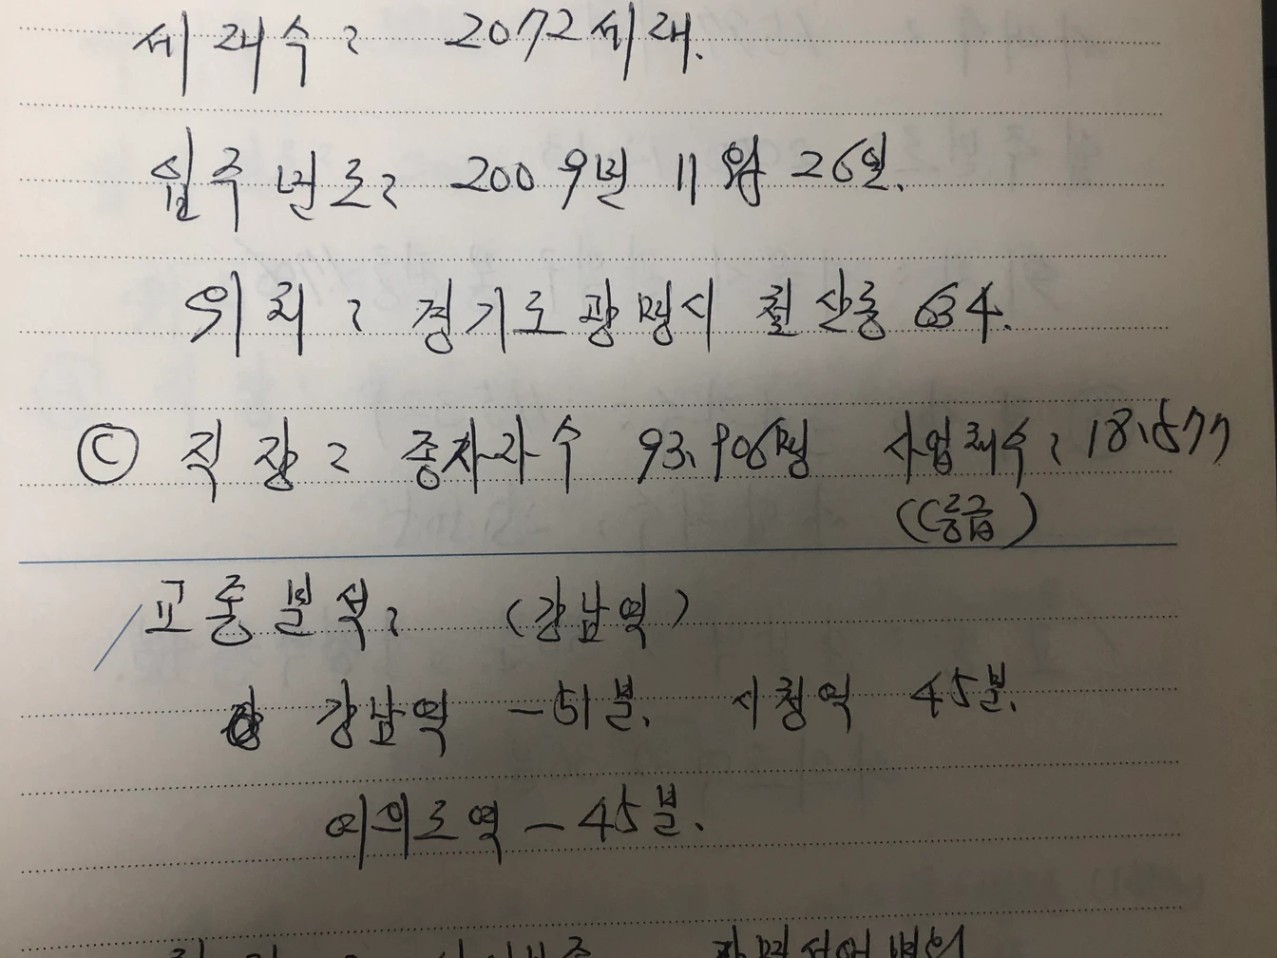 세대수 : 2072세대.
입주년도 : 2009년 11월 26일.
위치 : 경기도 광명시 철산동 634.
Ⓒ 직장 : 종사자수 93,906명 사업체수 : 18,577
(C등급)
교통분석 : (강남역)
강남역 - 51분. 시청역 45분.
여의도역 - 45분.